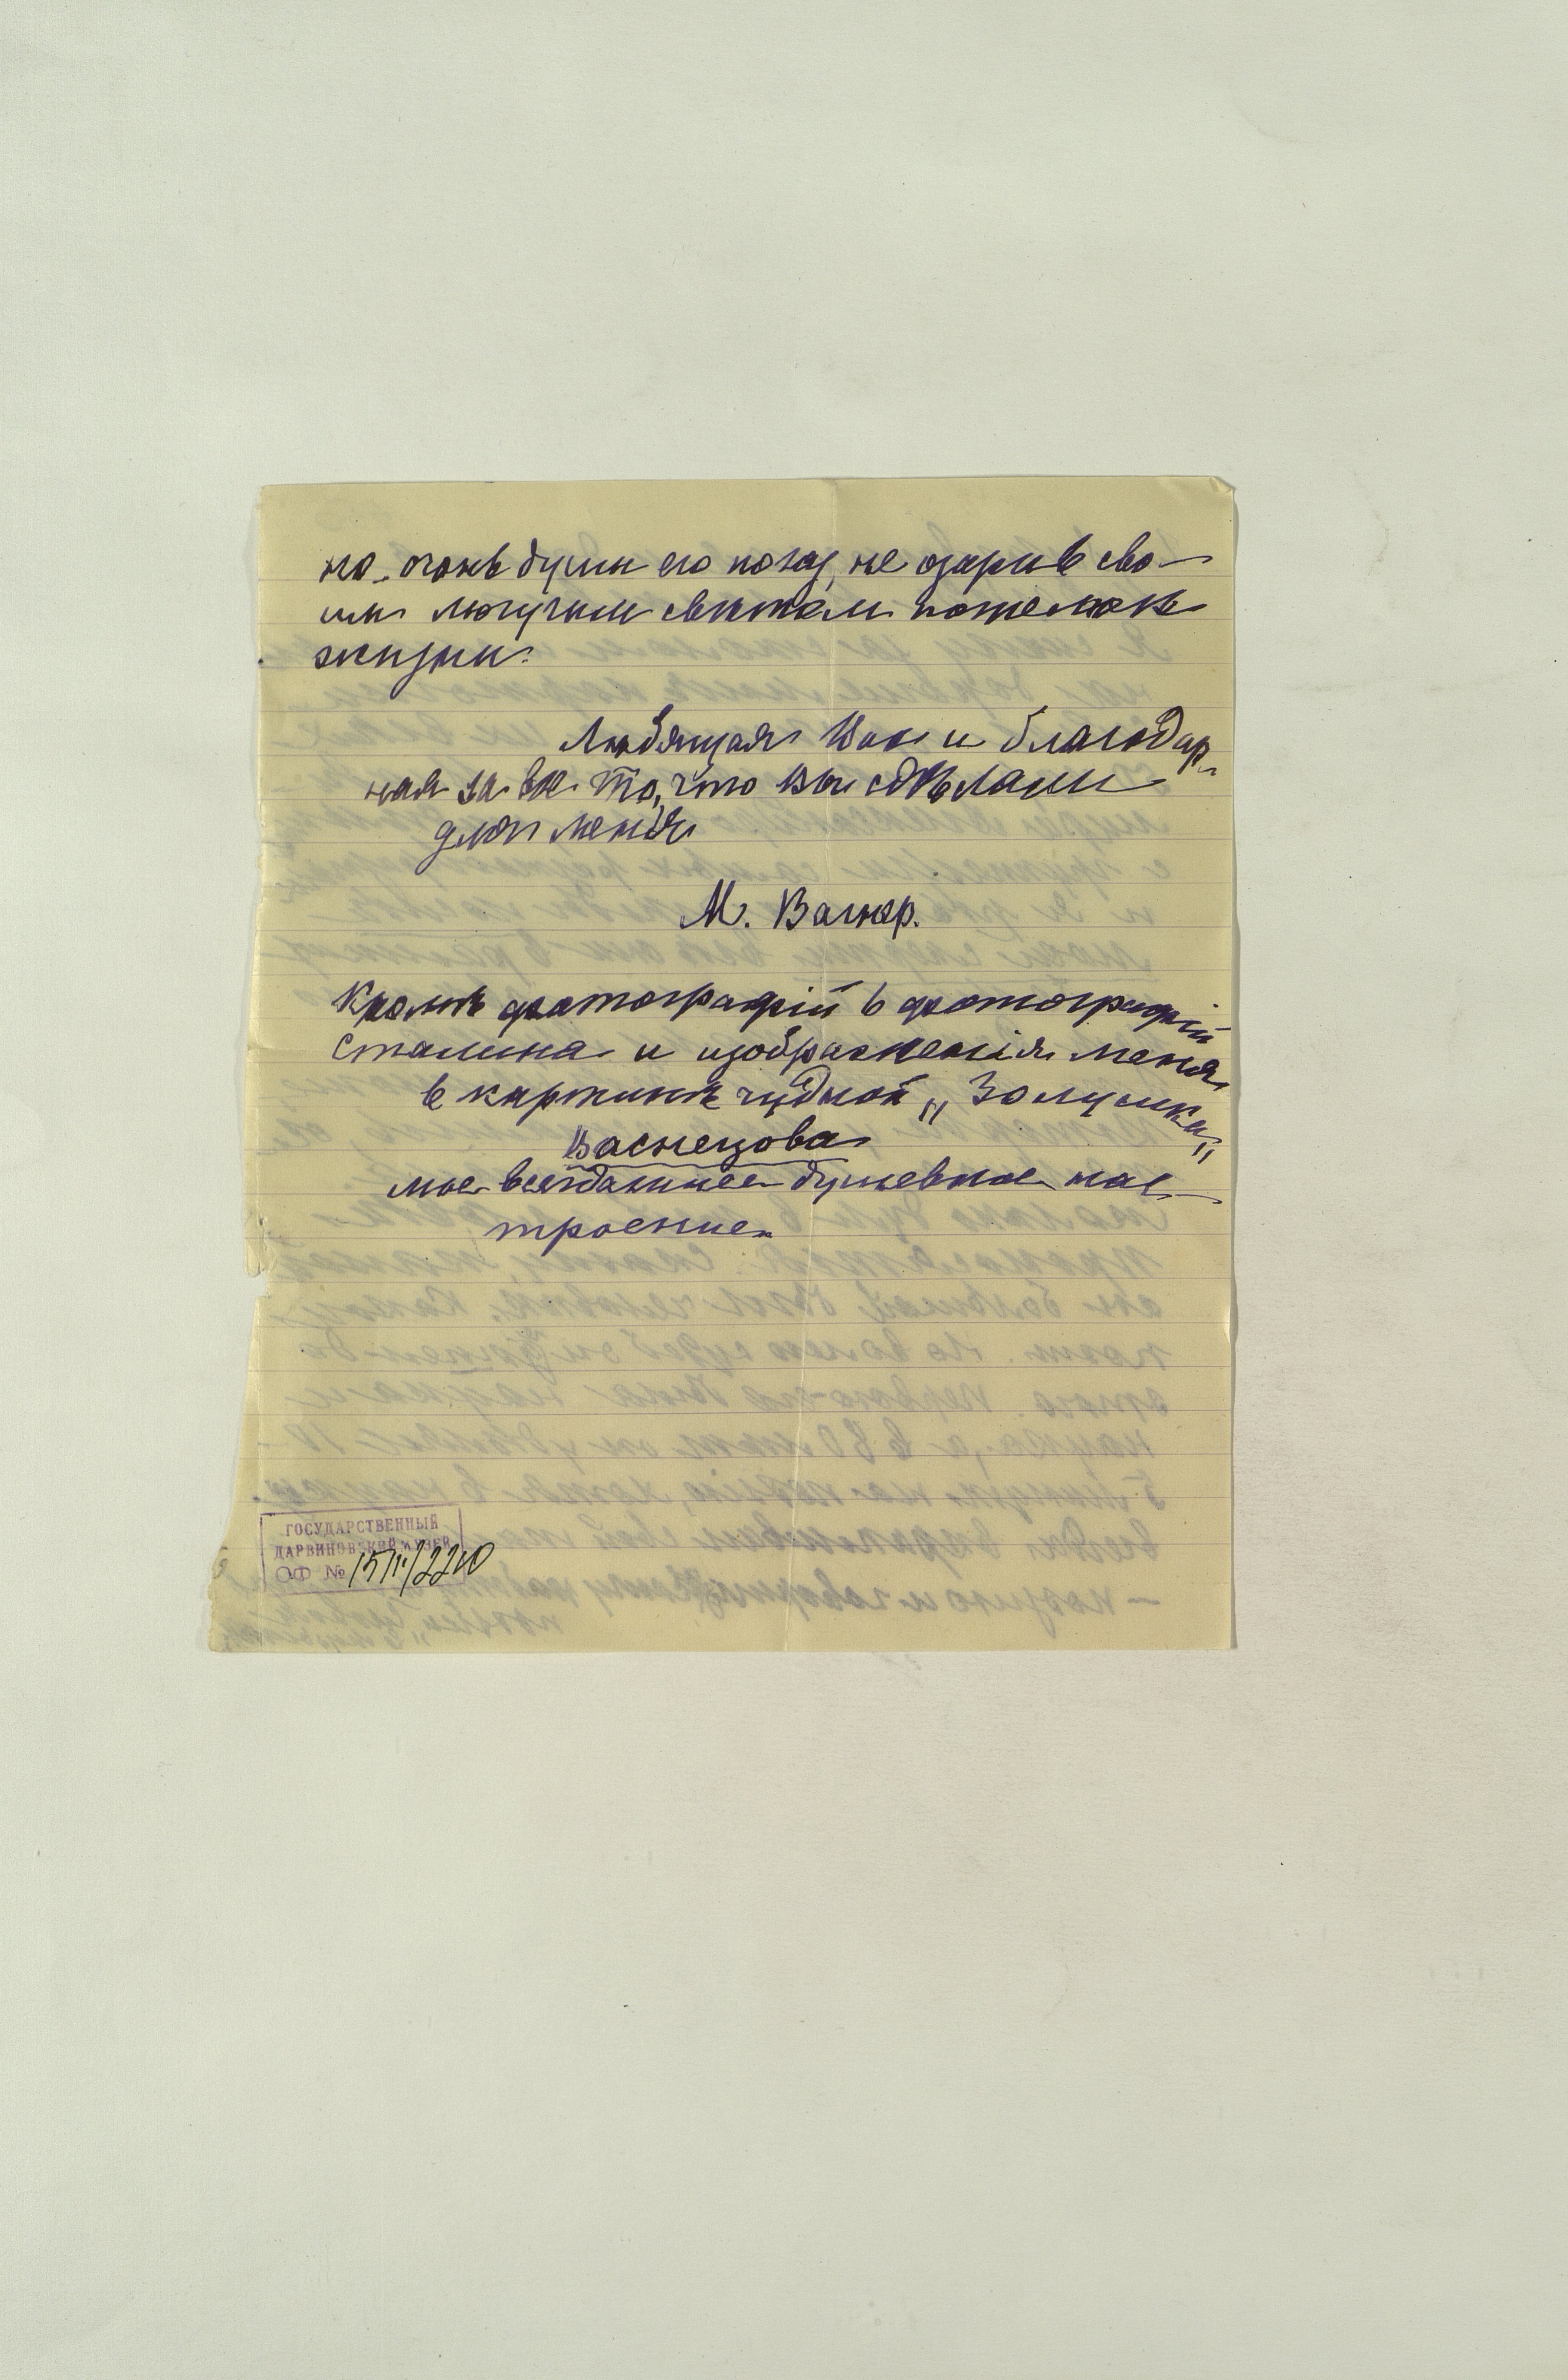 но огонь души его погас, не озарив сво-
им могучим светом потемок
жизни.
Любящая Вас и благодар-
ная за все то, что Вы сдѣлали
для меня
М. Вагнер.
Кромѣ фотографій в фотографій
Сталина и изображенія меня
в картинѣ чудной „Золушка„
Васнецова
мое всегдашнее душевное нас-
троение.
ГОСУДАРСТВЕННЫЙ
ДАРВИНОВСКИЙ МУЗЕЙ
ОФ №